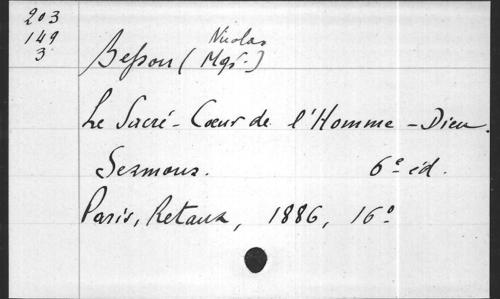 203
149
3
Nicolas
Besson (Mgr.)
Le Sacré-Cœur de l'Homme-Dieu.
Sermons. 6e éd.
Paris, Retaux, 1886, 16°